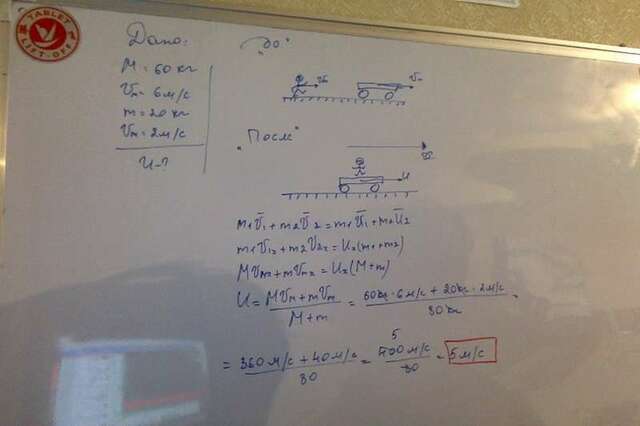 TABLET
LIFT-OFF
Дано:
M = 60 кг
Vм = 6 м/с
m = 20 кг
Vm = 2 м/с
U - ?
"До"
Vm
"После"
U
m1V̄1 + m2V̄2 = m1Ū1 + m2Ū2
m1V1x + m2V2x = Ux(m1+m2)
MVMx + mVmx = Ux(M+m)
U = MVM + mVm / M + m = 60кг · 6 м/с + 20кг · 2 м/с / 80 кг =
= 360 м/с + 40 м/с / 80 = 400 м/с / 80 = 5 м/с
5